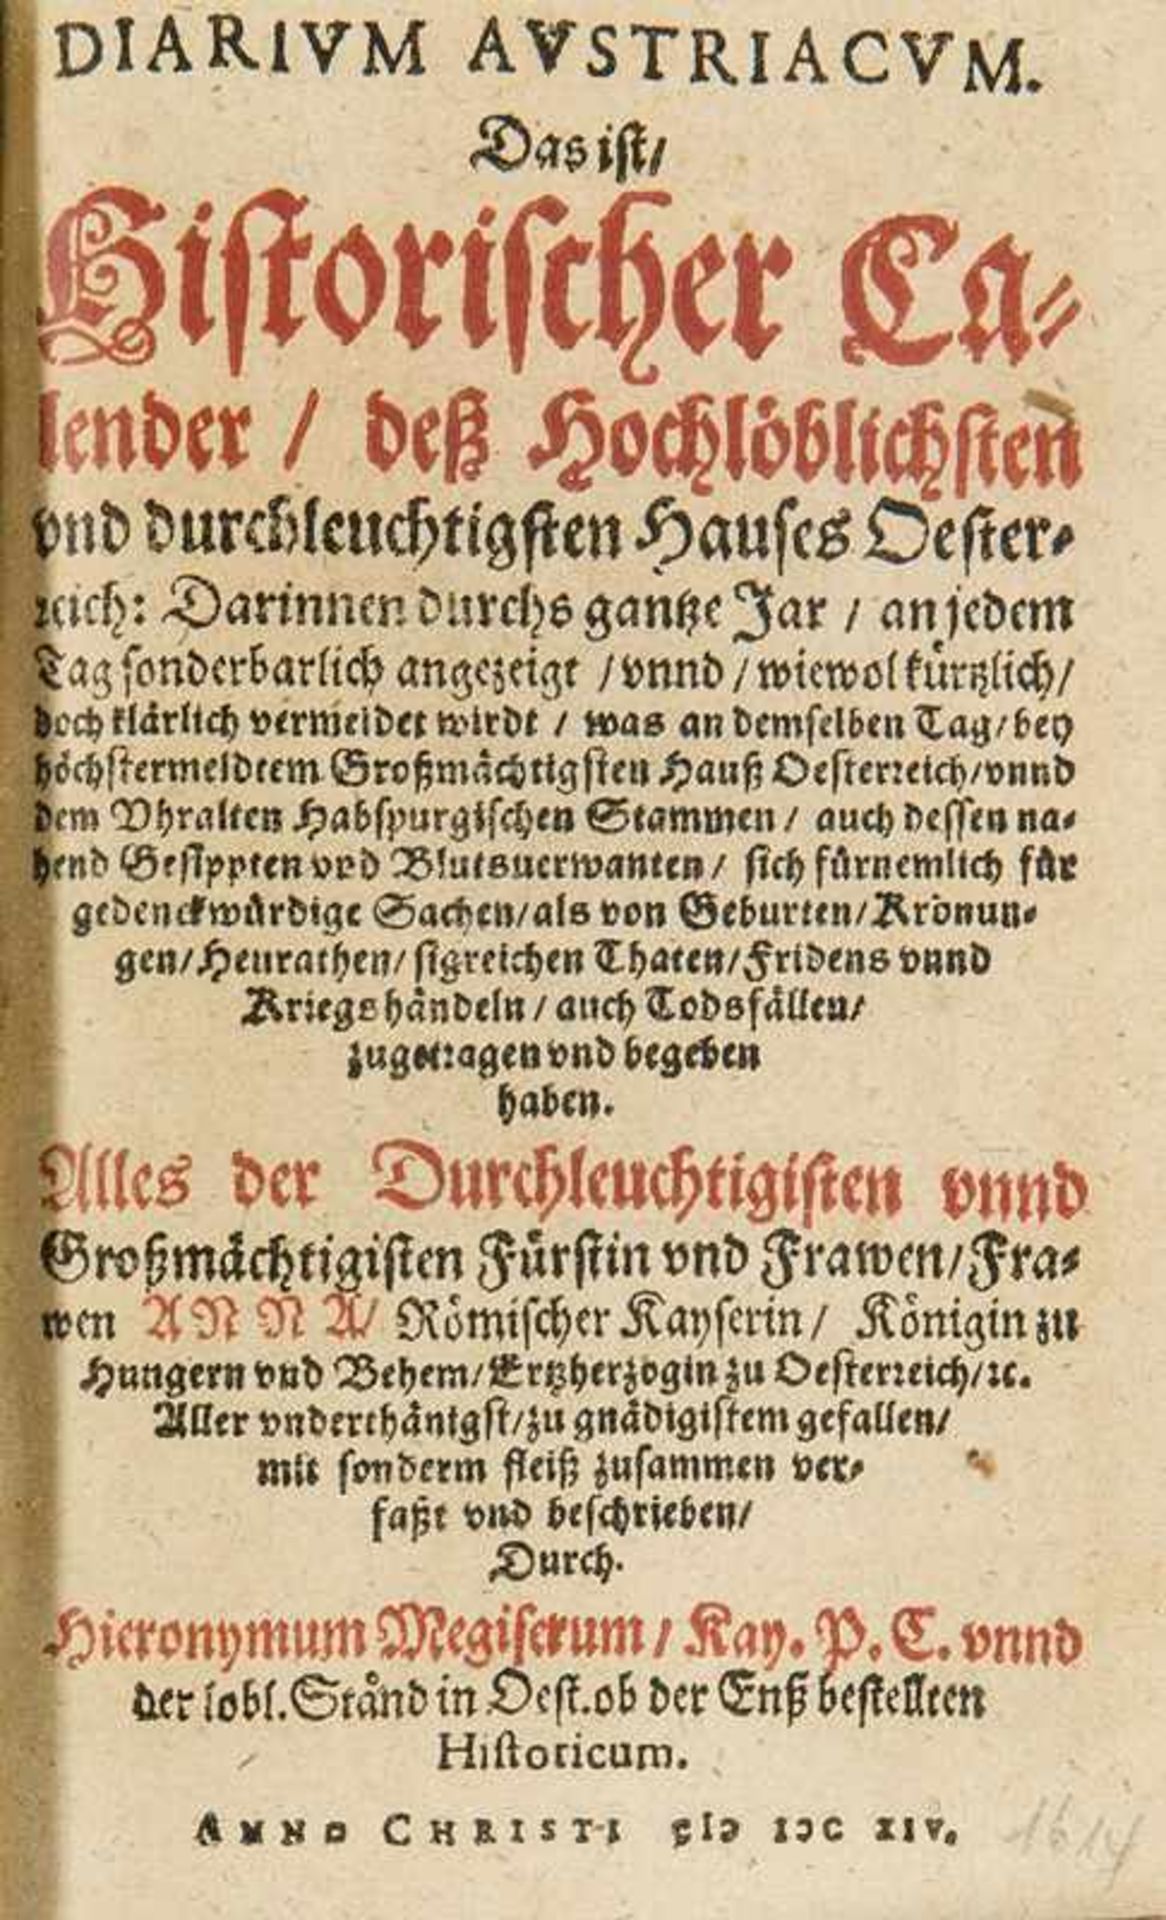 DIARIVM AVSTRIACVM.
Das iſt/
Hiſtoriſcher Ca⸗
lender / deß Hochlöblichſten
vnd durchleuchtigſten Hauſes Oeſter⸗
reich: Darinnen durchs gantze Jar / an jedem
Tag ſonderbarlich angezeigt / vnnd / wiewol kürtzlich/
doch klärlich vermeldet wirdt / was an demſelben Tag/ bey
höchſtermeldtem Großmächtigſten Hauß Oeſterreich/ vnnd
dem Vhralten Habſpurgiſchen Stammen / auch deſſen na⸗
hend Geſippten vnd Blutsuerwanten / ſich fürnemlich für
gedenckwürdige Sachen/ als von Geburten/ Krönun⸗
gen/ Heurathen/ ſigreichen Thaten/ Fridens vnnd
Kriegshändeln / auch Todsfällen/
zugetragen vnd begeben
haben.
Alles der Durchleuchtigiſten vnnd
Großmächtigiſten Fürſtin vnd Frawen/ Fra⸗
wen ANNA/ Römiſcher Kayſerin / Königin zu
Hungern vnd Behem/ Ertzherzogin zu Oeſterreich/ ꝛc.
Aller vnderthänigſt/ zu gnädigiſtem gefallen/
mit ſonderm fleiß zuſammen ver⸗
faßt vnd beſchrieben/
Durch.
Hieronymum Megiſerum / Kay. P. C. vnnd
der lobl. Ständ in Oeſt. ob der Enß beſtellten
Hiſtoricum.
ANNO CHRISTI CIↃ IↃC XIV.
1614